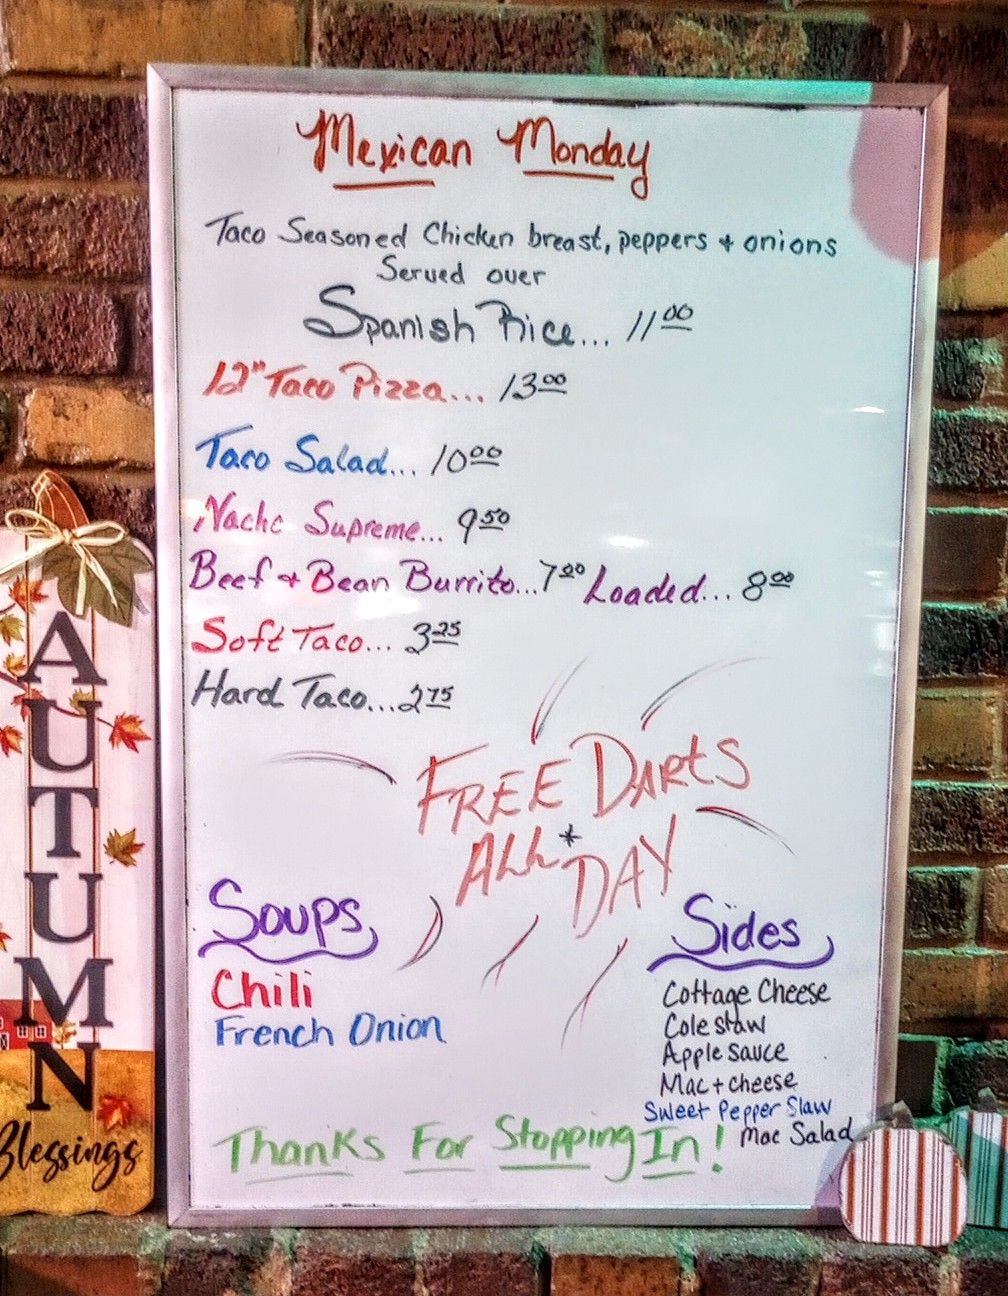 Mexican Monday
Taco Seasoned Chicken breast, peppers + onions
Served over
Spanish Rice... 11.00
12" Taco Pizza... 13.00
Taco Salad... 10.00
Nacho Supreme... 9.50
Beef + Bean Burrito... 7.00 Loaded... 8.00
Soft Taco... 3.25
Hard Taco... 2.75
FREE DARTS
ALL * DAY
Soups
Chili
French Onion
Sides
Cottage Cheese
Cole slaw
Apple sauce
Mac + cheese
Sweet Pepper Slaw
Mac Salad
Thanks For Stopping In!
AUTUMN
Blessings